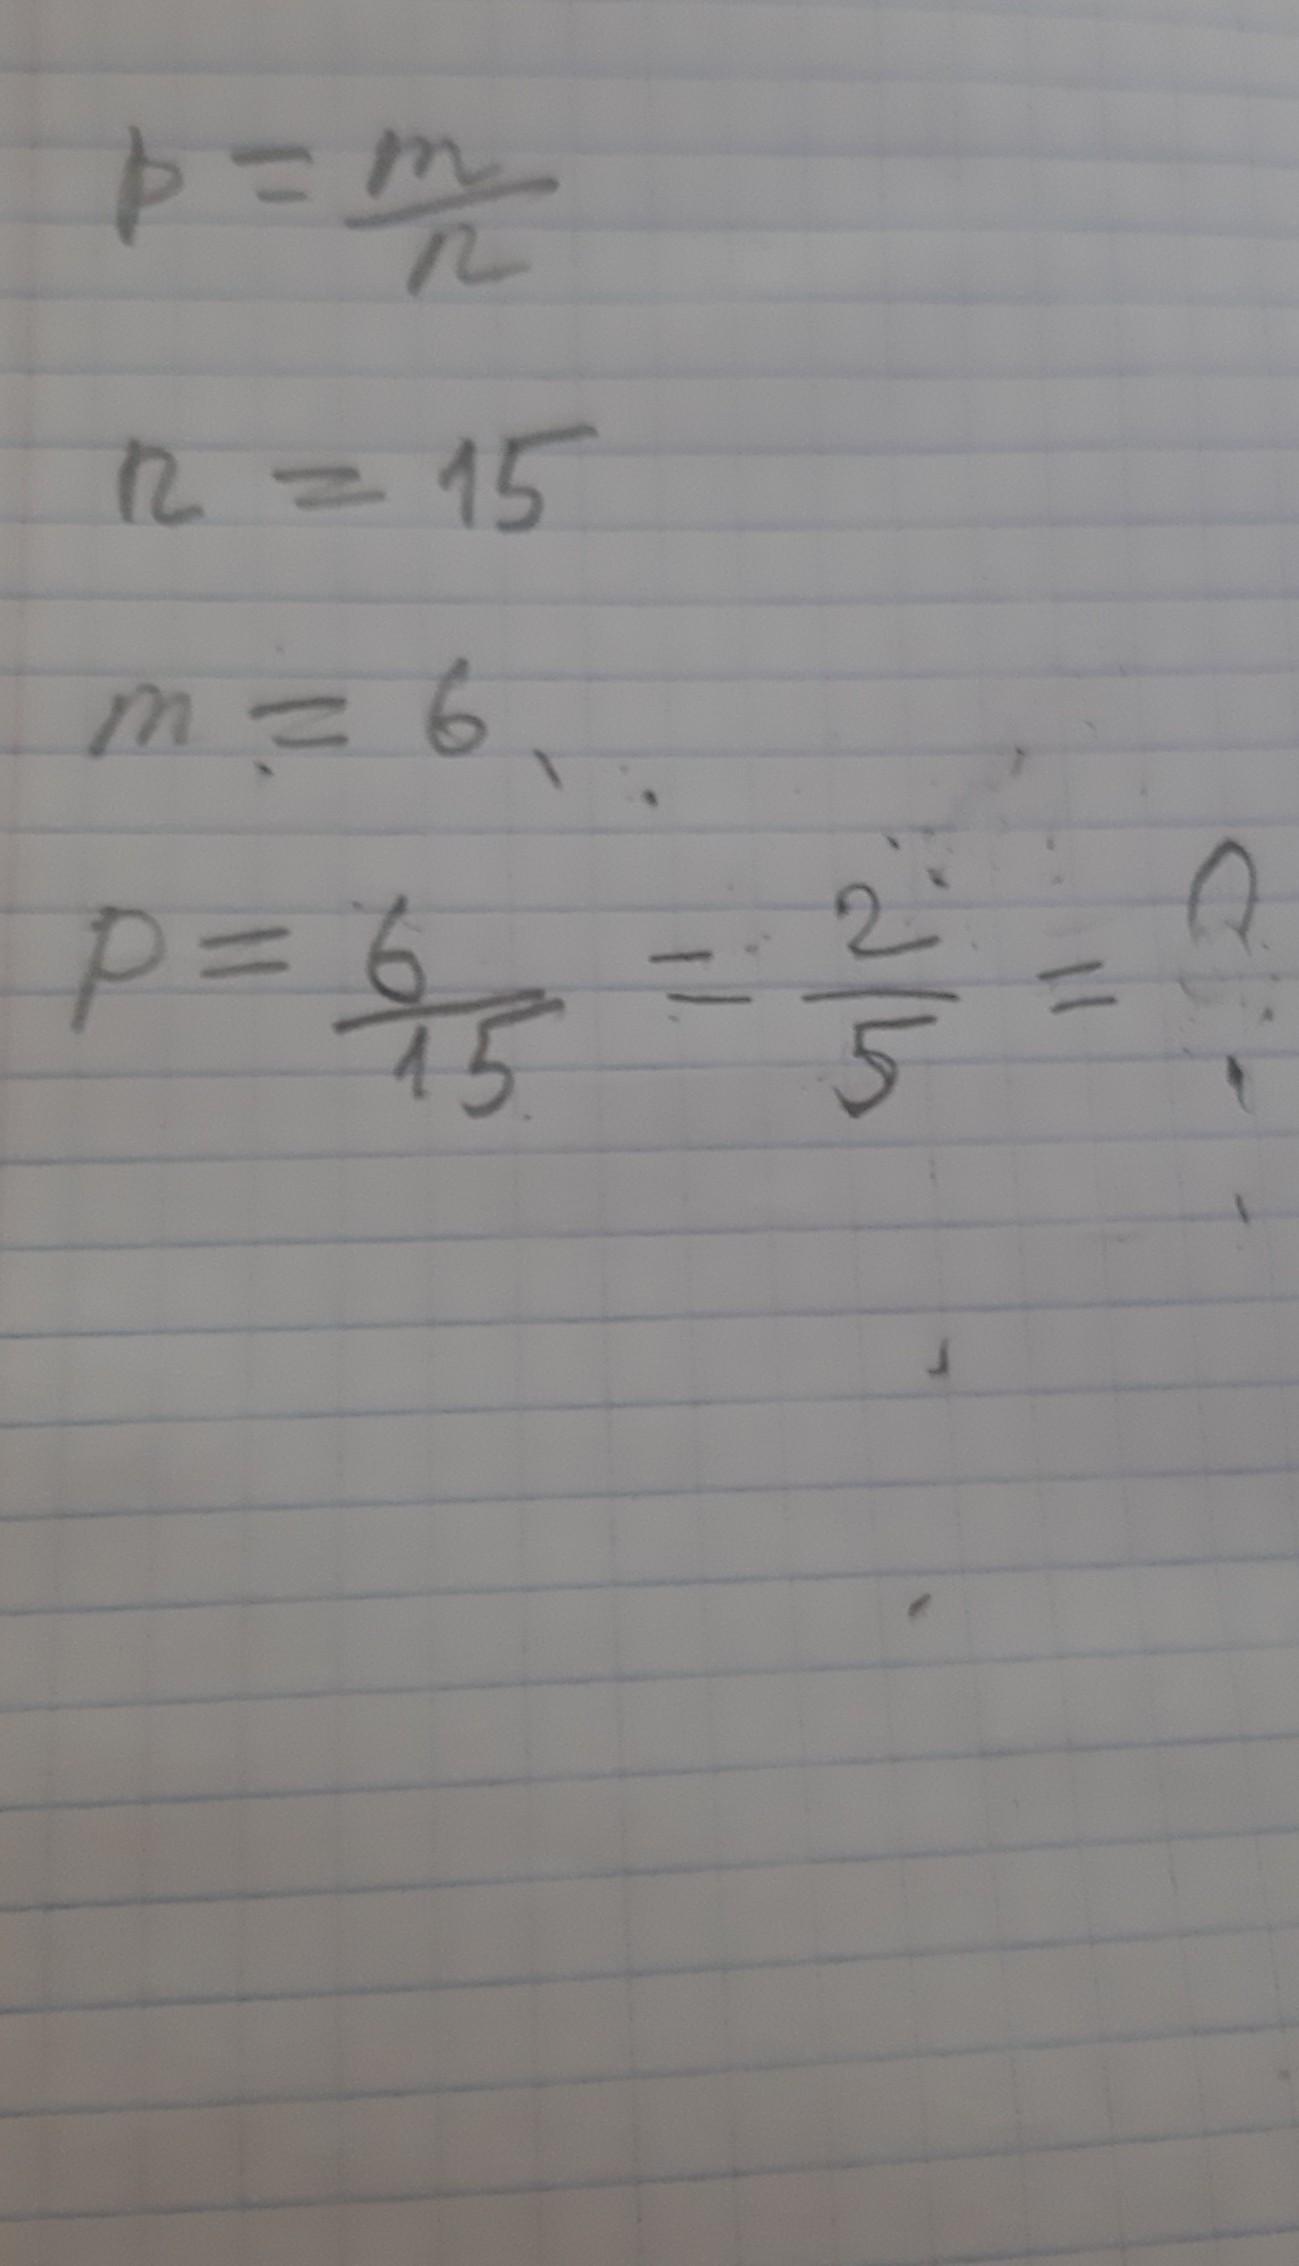 p = m/n
n = 15
m = 6
p = 6/15 = 2/5 =